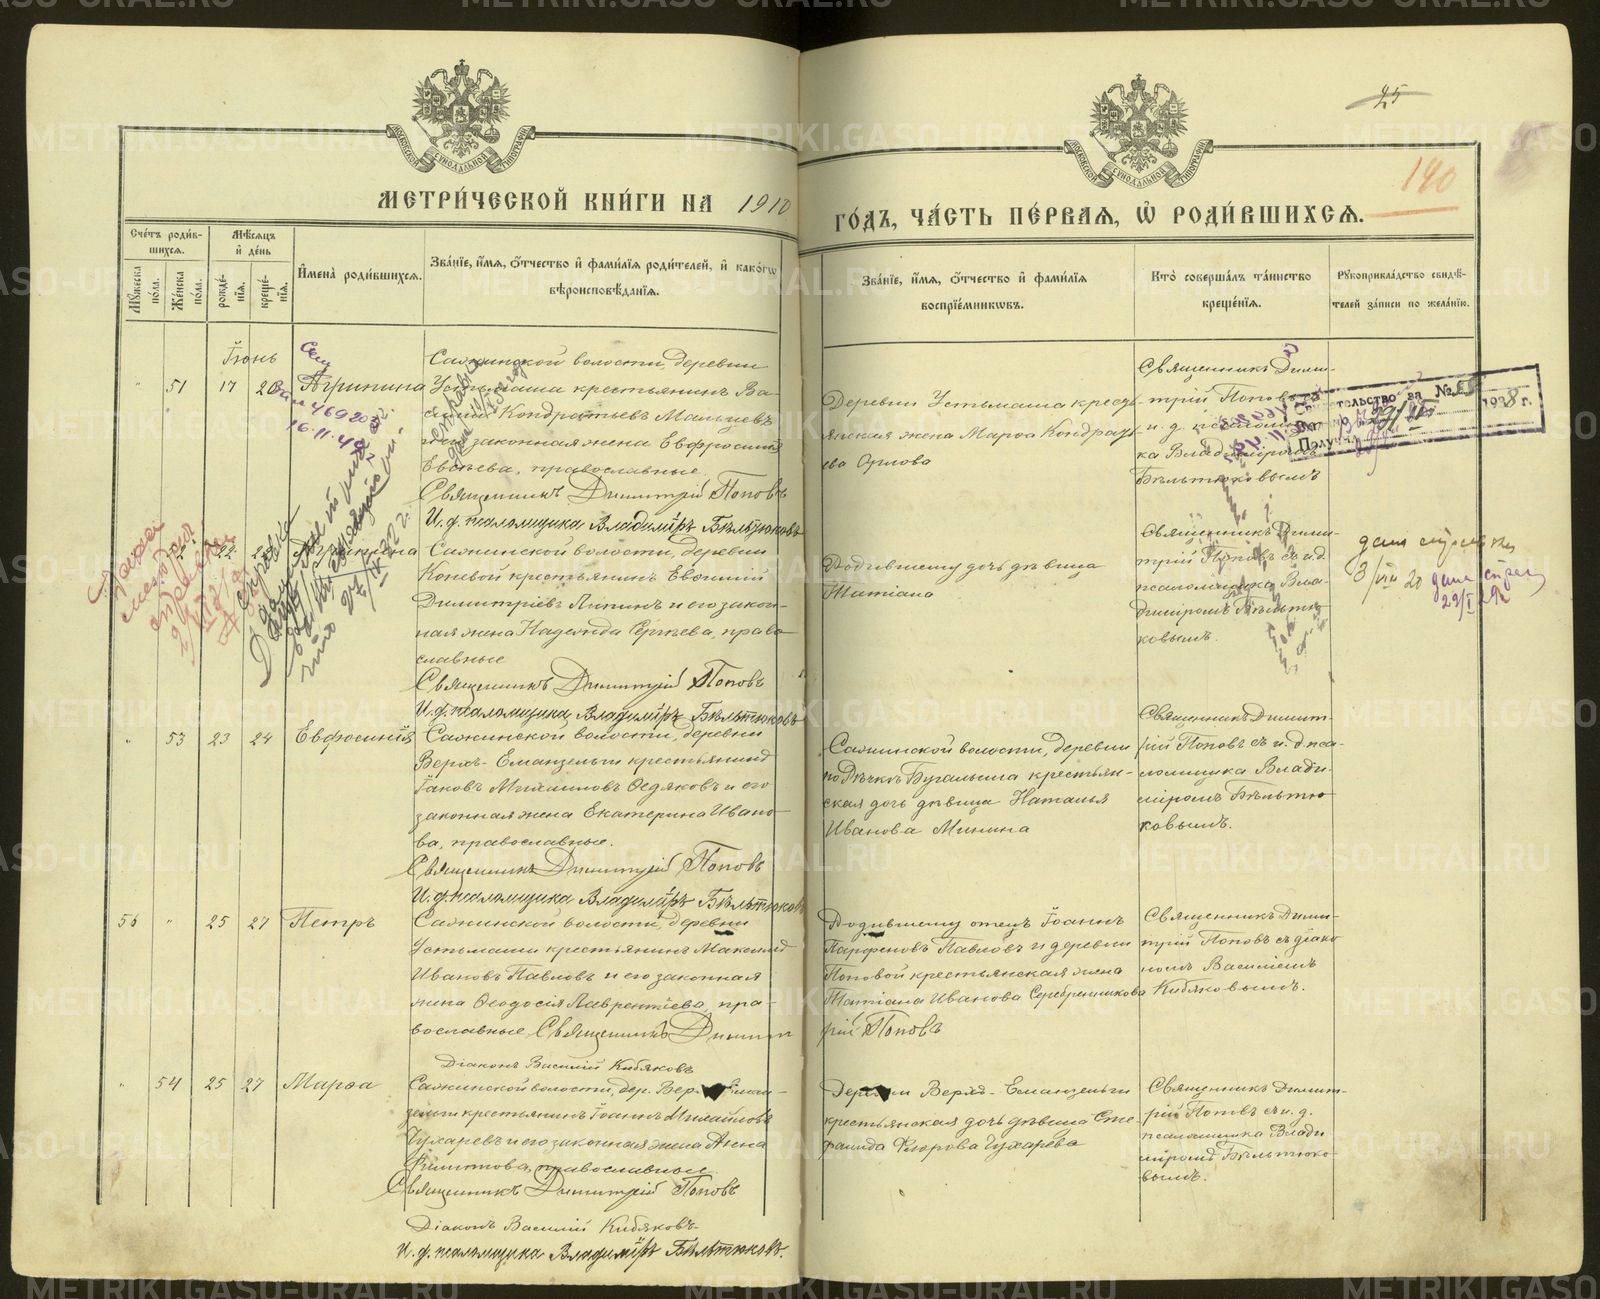 25
140
МЕТРИ́ЧЕСКОЙ КНИ́ГИ НА 1910
ГО́ДЪ, ЧА́СТЬ ПЕ́РВАЯ, Ѡ РОДИ́ВШИХСЯ.
МОСКОВСКОЙ СѴНОДАЛЬНОЙ ТИПОГРАФІИ
МОСКОВСКОЙ СѴНОДАЛЬНОЙ ТИПОГРАФІИ
Сче́тъ роди́вшихся.
Мꙋжеска по́ла.
Же́нска по́ла.
Мѣ́сяцъ и҆ де́нь
рожде́нїя.
креще́нїя.
И҆мена̀ роди́вшихся.
Зва́нїе, и҆́мя, ѻ҆́тчество и҆ фами́лїя роди́телей, и҆ како́гѡ
вѣроисповѣ́данїя.
Зва́нїе, и҆́мя, ѻ҆́тчество и҆ фами́лїя
воспрїе́мникѡвъ.
Кто̀ соверша́лъ та́инство
креще́нїя.
Рꙋкоприкла́дство свидѣ́-
телей за́писи по жела́нїю.
Іюнь
" 51 17 20 Агрипина
Сажинской волости, деревни
Устьмаша крестьянинъ Ва-
силий Кондратьевъ Мальцевъ
и его законная жена Евфросинія
православные.
Священникъ Димитрій Поповъ
И. д. псаломщика Владиміръ Бѣльтюковъ
Деревни Устьмаша кресть-
янская жена Марѳа Кондрать-
ева Орлова
Священникъ Дими-
трій Поповъ съ
и. д. псаломщи-
ка Владиміромъ
Бѣльтюковымъ
16.11.49 г.
Свидетельство за №
1938 г.
Получил
22 Агрипина
Сажинской волости, деревни
Коневой крестьянинъ Евгеній
Димитріевъ Липинъ и его закон-
ная жена Надежда Сергѣева, право-
славные
Священникъ Димитрій Поповъ
И. д. псаломщика Владиміръ Бѣльтюковъ
Родившему дочь дѣвица
Татіана
Священникъ Дими-
трій Поповъ съ и. д.
псаломщика Вла-
диміромъ Бѣльтю-
ковымъ.
дана справка
3/VIII 20 дана справ
" 53 23 24 Евфросинія
Сажинской волости, деревни
Верхъ-Еманзельги крестьянинъ
Іаковъ Михаиловъ Ѳедяковъ и его
законная жена Екатерина Ивано-
ва, православные.
Священникъ Димитрій Поповъ
И. д. псаломщика Владиміръ Бѣльтюковъ
Сажинской волости, деревни
по Рѣчкѣ Бугалыша крестьян-
ская дочь дѣвица Наталья
Иванова Минина
Священникъ Димит-
рій Поповъ съ и. д. пса-
ломщика Влади-
міромъ Бѣльтю
ковымъ.
56 " 25 27 Петръ
Сажинской волости, деревни
Устьмаши крестьянинъ Максимъ
Ивановъ Павловъ и его законная
жена Ѳеодосія Лаврентіева, пра-
вославные Священникъ Димит
рій Поповъ
Діаконъ Василій Кибяковъ
Родившему отецъ Іоаннъ
Парфеновъ Павловъ и деревни
Поповой крестьянская жена
Татіана Иванова Серебренникова
Священникъ Дими-
трій Поповъ съ діако
номъ Василіемъ
Кибяковымъ.
" 54 25 27 Марѳа
Сажинской волости, дер. Верхъ-Еман-
зельги крестьянинъ Іоаннъ Михаиловъ
Чухаревъ и его законная жена Анна
православные.
Священникъ Димитрій Поповъ
Діаконъ Василій Кибяковъ
И. д. псаломщика Владиміръ Бѣльтюковъ.
Деревни Верхъ-Еманзельги
крестьянская дочь дѣвица Сте
фанида Флорова Чухарева
Священникъ Димит-
рій Поповъ съ и. д.
псаломщика Влади
міромъ Бѣльтюко-
вымъ.
METRIKI.GASO-URAL.RU